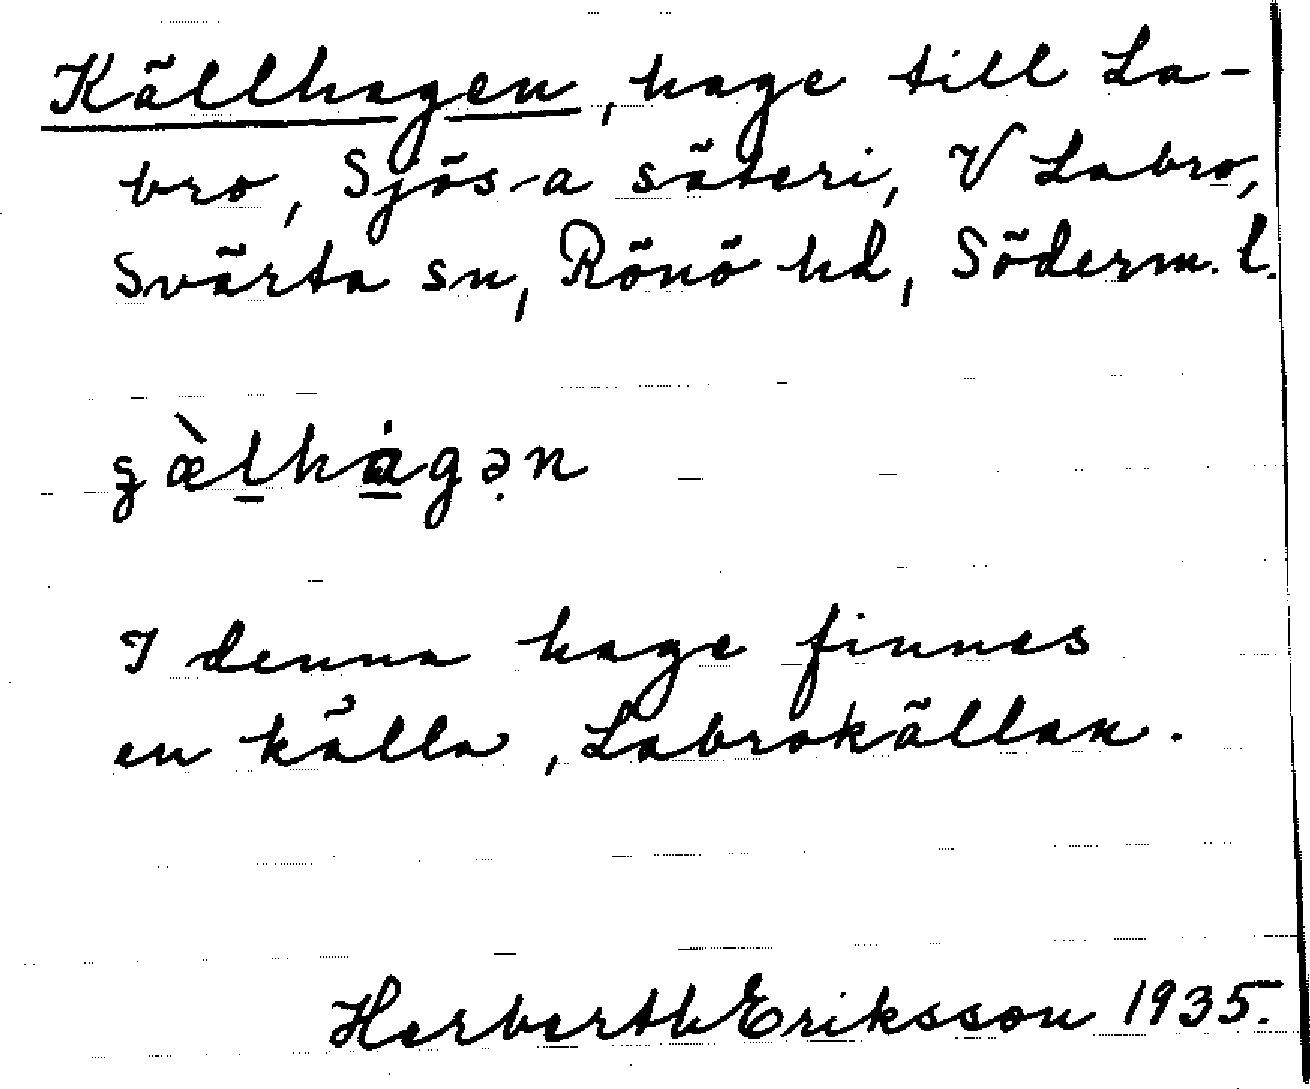 Källhagen, hage till La-
bro, Sjösa säteri, V Labro,
Svärta sn, Rönö hd, Söderm. l.
I denna hage finnes
en källa, Labrokällan.
Herberth Eriksson 1935.